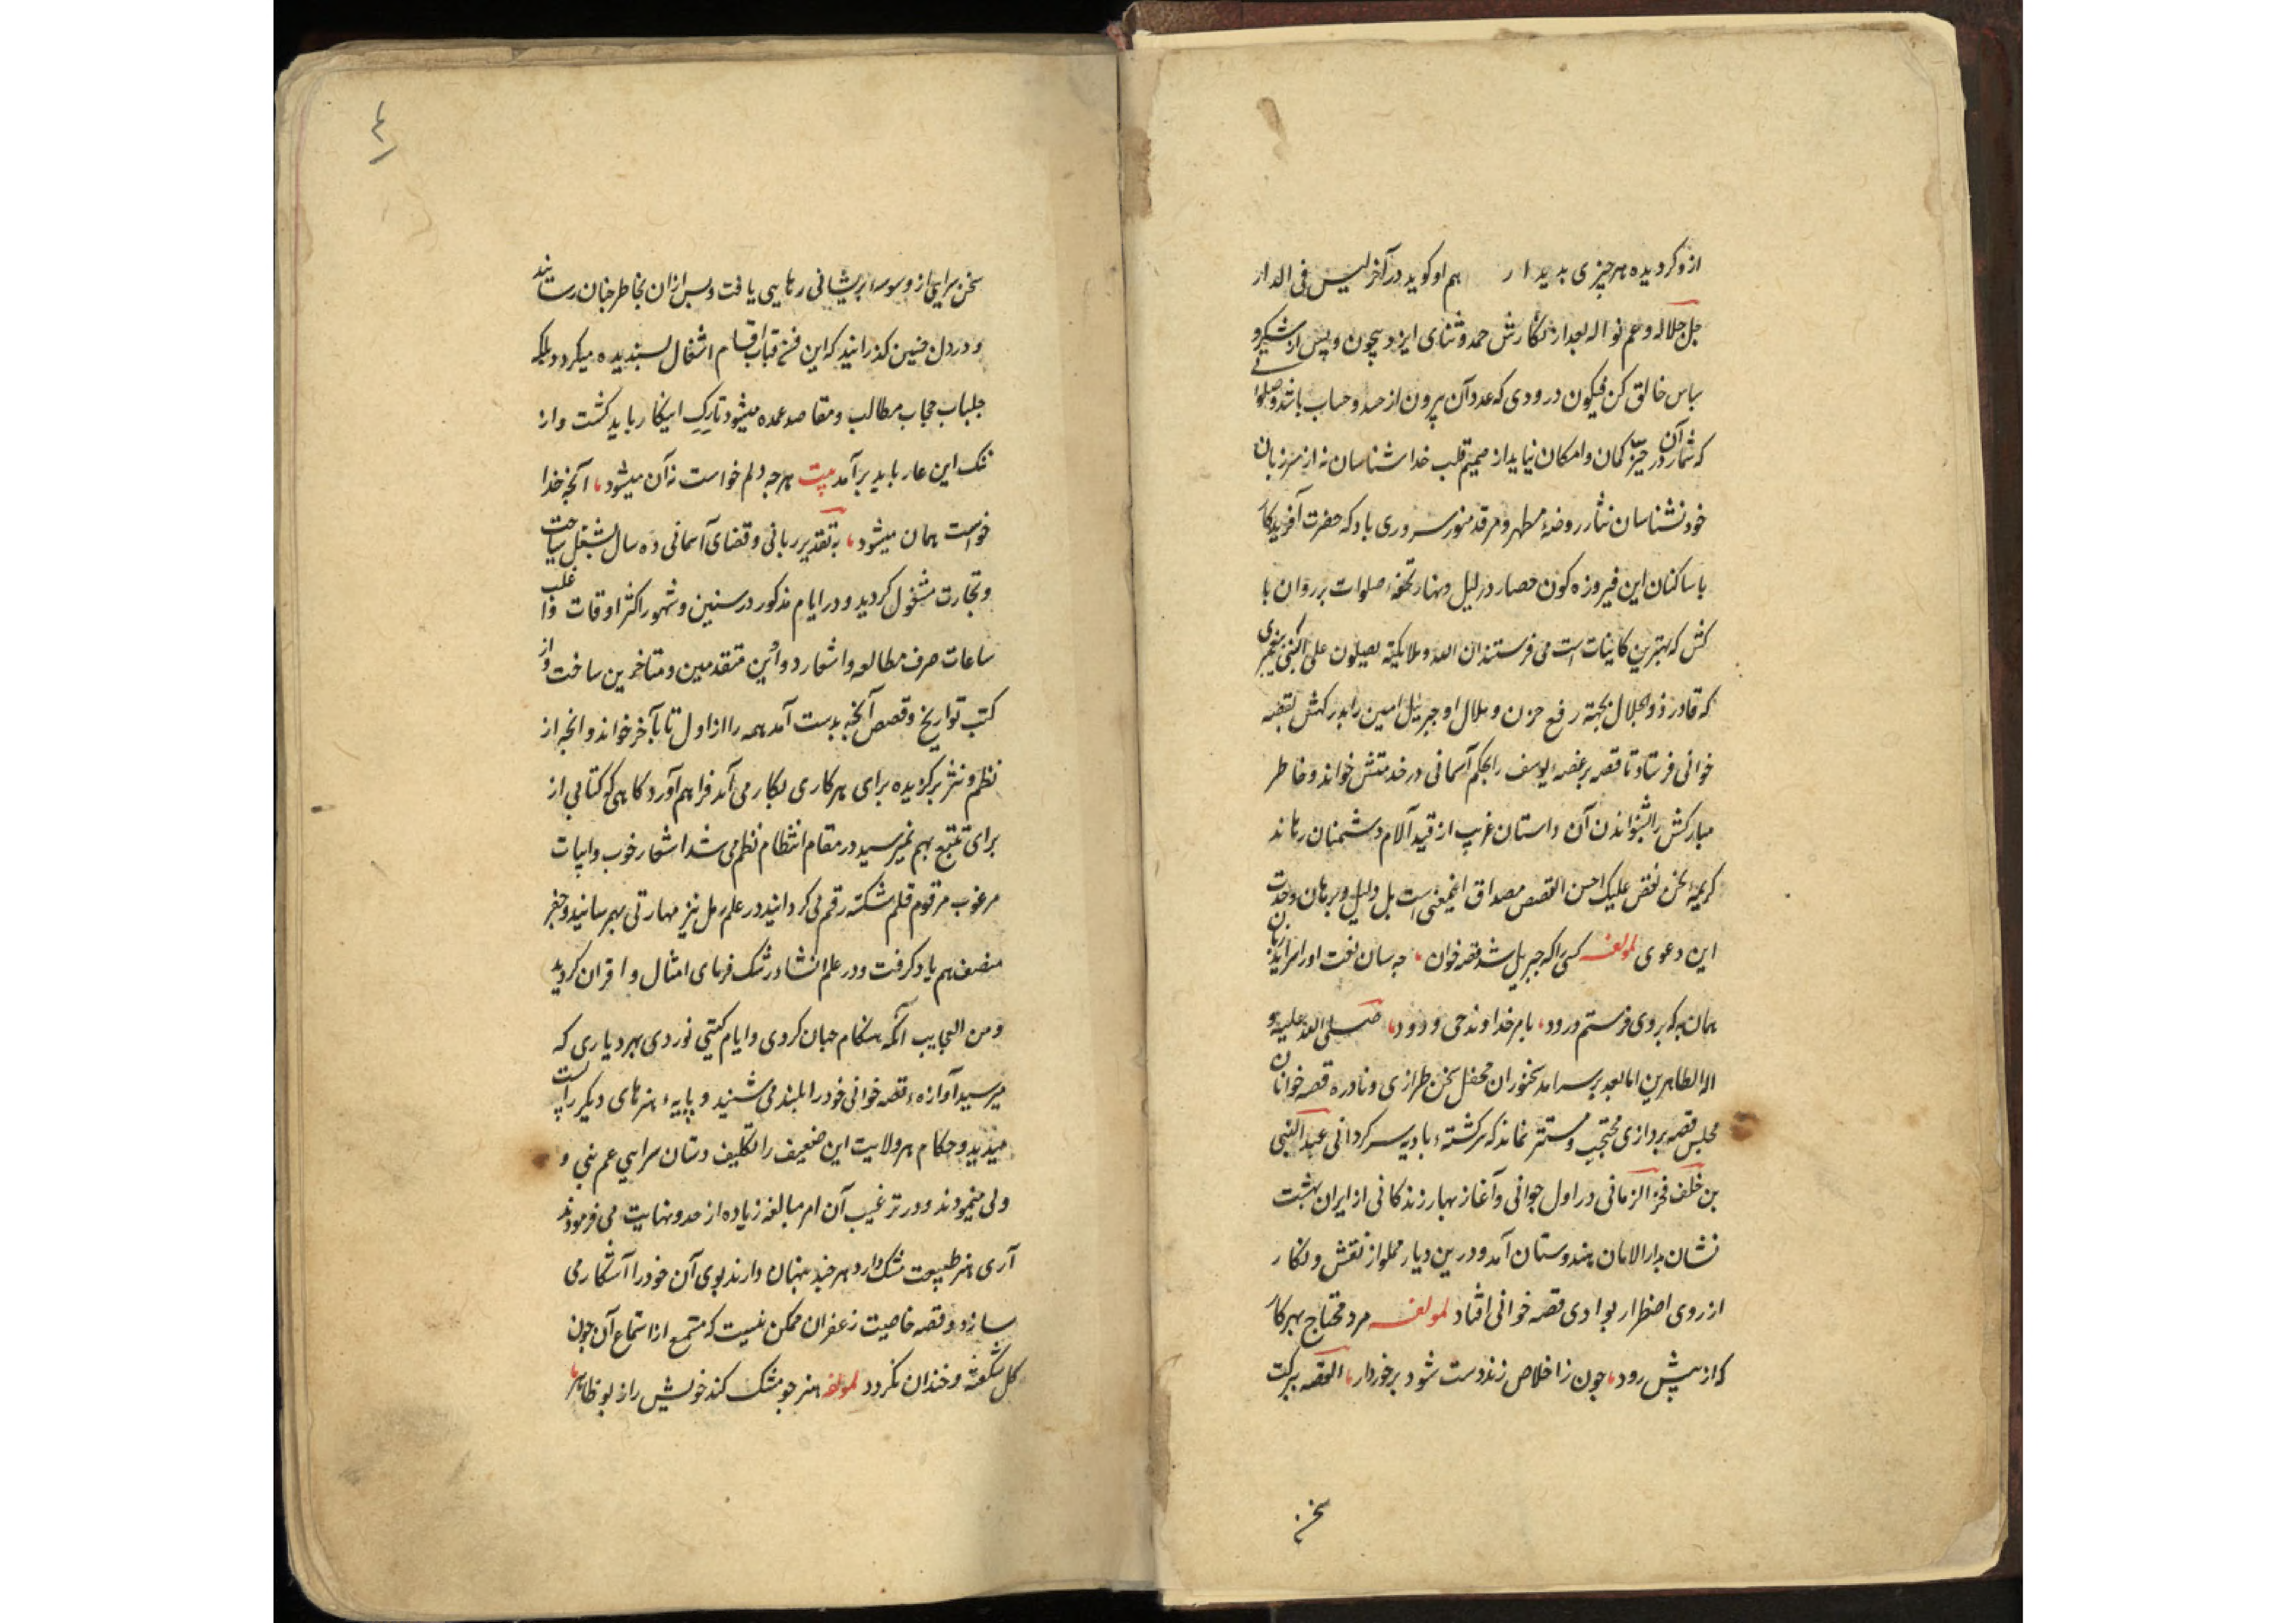 ازو کردیده هر چیزی بدیدار هم او کوید در آخر لیس فی الدار
جل جلاله و عم نواله بعد از نکارش حمد و ثنای ایزد بیچون و پس از شکر و
سباس خالق کن فیکون درودی که عدد آن بیرون از حد و حساب باشد و صلواتی
که شمار آن در حیّز کمان و امکان نیاید از صمیم قلب خداشناسان نه از سر زبان
خود نشناسان نثار روضهٔ مطهر و مرقد منور سروری باد که حضرت آفریدکار
با ساکنان این فیروزه کون حصار در لیل و نهار تحفهٔ صلوات بر روان پا
کش که بهترین کاینات است می فرستند ان الله و ملایکته یصلون علی النبی پیغمبری
که قادر ذو الجلال بجهته رفع حزن و ملال او جبرئیل امین را بدرکهش بقصه
خوانی فرستاد تا قصه بر غصهٔ یوسف را بحکم آسمانی در خدمتش خواند و خاطر
مبارکش را بشنواندن آن داستان غریب از قید آلام دشمنان رهاند
کریمهٔ نحن نقص علیک احسن القصص مصداق اینمعنی است بل دلیل و برهان وحدت
این دعوی لمولفه کسی را که جبریل شد قصه خوان چه سان نعت او را سراید زبان
همان به که بر وی فرستم درود بامر خداوند حی ودود صلی الله علیه و
اله الطاهرین اما بعد بر سرامد سخنوران محفل سخن طرازی و نادره قصه خوانان
مجلس قصه بردازی محتجب و مستتر نماند که سرکشتهٔ بادیه سرکردانی عبد النبی
بن خلف فخر الزمانی در اول جوانی و آغاز بهار زندکانی از ایران بهشت
نشان بدار الامان هندوستان آمد و درین دیار مملو از نقش و نکار
از روی اضطرار بوادی قصه خوانی افتاد لمولفه مرد محتاج بهر کار
که از پیش رود چون ز اخلاص زند دست شود برخوردار القصه ببرکت
سخن
٤
سخن سرایی از وسوسهٔ پریشانی رهایی یافت و پس از ان بخاطر جنان رسانید
و در دل چنین کذرانید که این فن قباب اقسام اشغال بسندیده میکردد بلکه
جلباب حجاب مطالب و مقاصد عمده میشود تارک اینکار باید کشت و از
ننک این عار باید برآمد بیت هرچه دلم خواست نه آن میشود آنچه خدا
خواست همان میشود به تقدیر ربانی و قضای آسمانی ده سال بشغل سیاحت
و تجارت مشغول کردید و در ایام مذکور در سنین و شهور اکثر اوقات و اغلب
ساعات صرف مطالعه و اشعار دواوین متقدمین و متاخرین ساخت و از
کتب تواریخ و قصص آنچه بدست آمد همه را از اول تا بآخر خواند و انچه از
نظم و نثر برکزیده برای هر کاری بکار می آمد فراهم آورد کاهی که کتابی از
برای تتبع بهم نمیرسید در مقام انتظام نظم می شد اشعار خوب و ابیات
مرغوب مرقوم قلم شکسته رقم می کردانید در علم رمل نیز مهارتی بهم رسانید و جفر
منصف هم یاد کرفت و در علم انشا در رشک فرمای امثال و اقران کردید
و من العجایب آنکه هنکام جهان کردی و ایام کیتی نوردی بهر دیاری که
میرسید آوازهٔ قصه خوانی خود را بلند می شنید و پایهٔ هنرهای دیکر را پست
میدید و حکام هر ولایت این ضعیف را تکلیف دستان سرایی عم نبی و
ولی مینمودند و در ترغیب آن امر مبالغه زیاده از حد و نهایت می فرمودند
آری هنر طبیعت مشک دارد هر چند پنهان دارند بوی آن خود را آشکار می
سازد و قصه خاصیت زعفران ممکن نیست که مستمع از استماع آن چون
کل شکفته و خندان نکردد لمولفه هنر چو مشک کند خویش را ز بو ظاهر